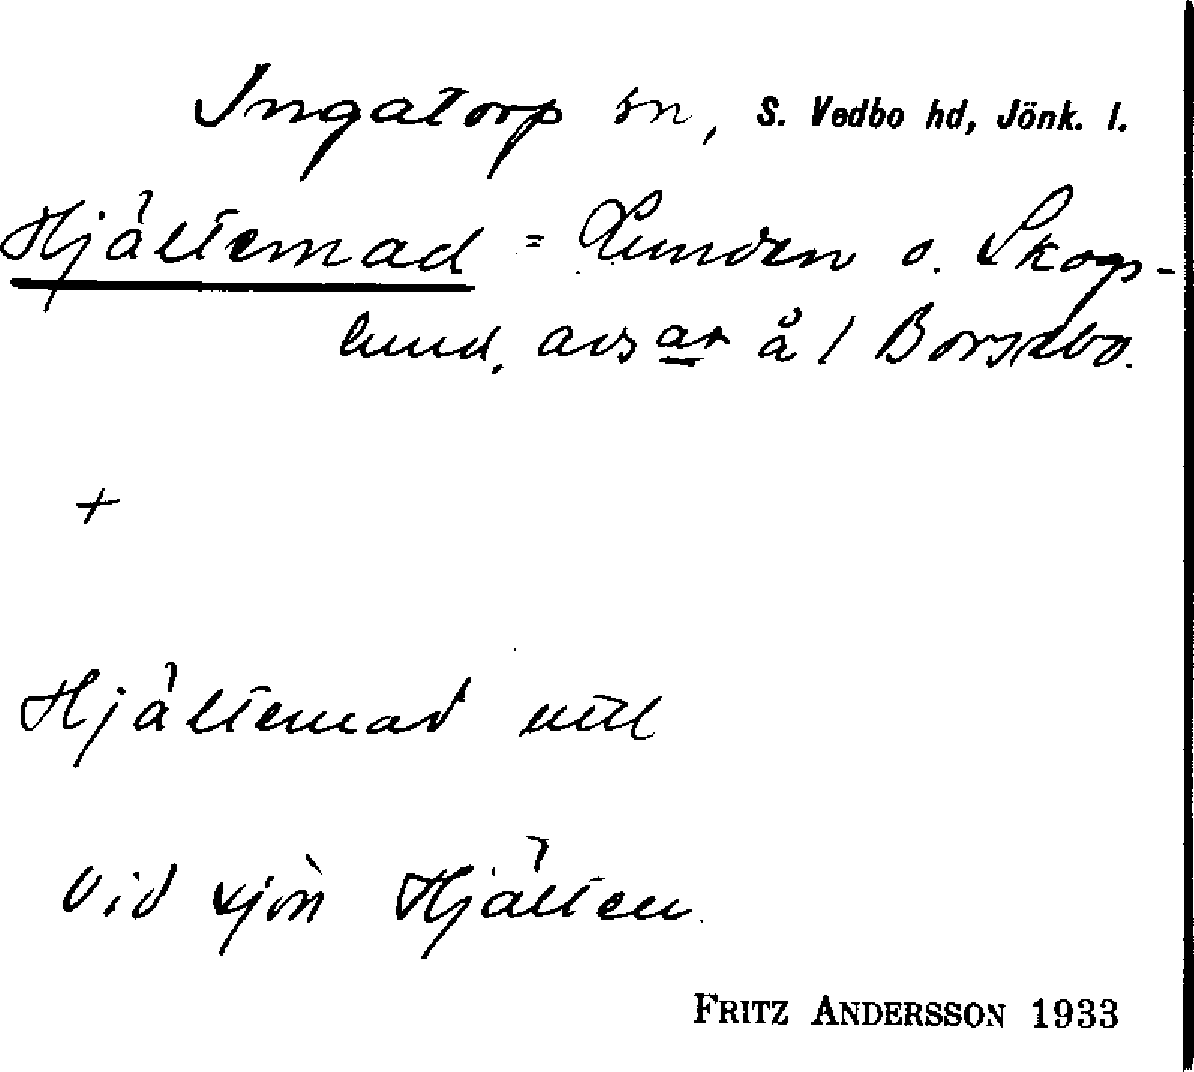 Ingatorp sn, S. Vedbo hd, Jönk. l.
Hjältemad = Lunden o. Skogs-
lund, avsar å 1 Borstbo.
+
Hjältemad utl
Vid sjön Hjälten.
FRITZ ANDERSSON 1933